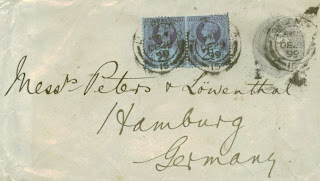 Messrs Peters & Löwenthal
Hamburg
Germany